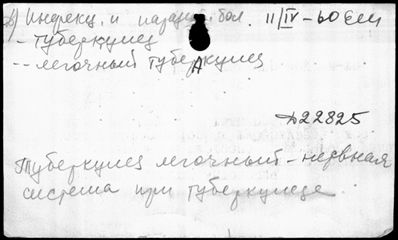 Инфекц. и паразит. бол. 11/IV-60 Ем
- туберкулез
-- легочный туберкулез
Д22825
Туберкулез легочный - нервная
система при туберкулезе